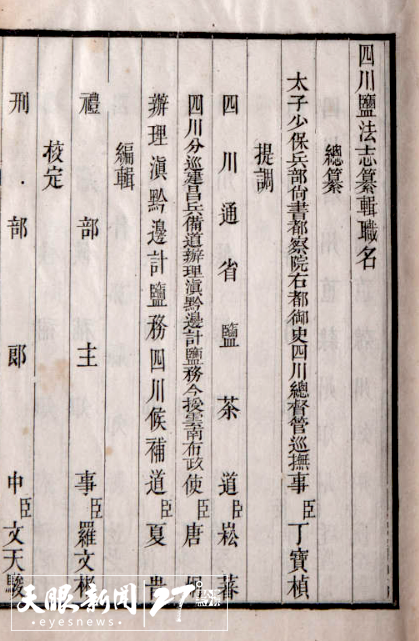 四川鹽法志纂輯職名
總纂
太子少保兵部尚書都察院右都御史四川總督管巡撫事臣丁寶楨
提調
四川通省鹽茶道臣崧蕃
四川分巡建昌兵備道辦理滇黔邊計鹽務今授雲南布政使臣唐
辦理滇黔邊計鹽務四川候補道臣夏
編輯
禮部主事臣羅文彬
校定
刑部郎中臣文天駿
天眼新闻
eyesnews
27°